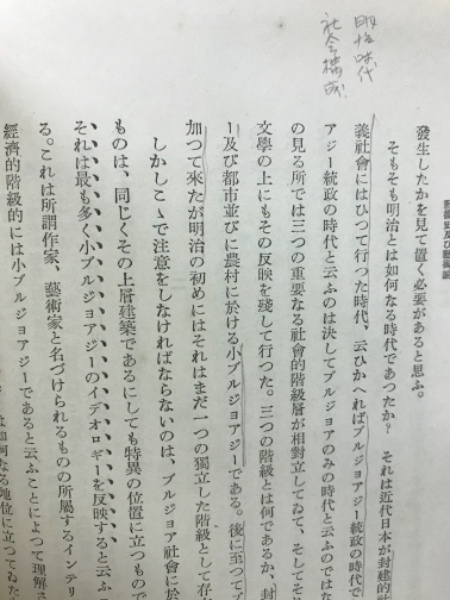 明治時代
社会構成
藝術史及び藝術論
發生したかを見て置く必要があると思ふ。
そもそも明治とは如何なる時代であつたか? それは近代日本が封建的
義社會にはひつて行った時代、云ひかへればブルジョアジー統政の時代で
アジー統政の時代と云ふのは決してブルジョアのみの時代と云ふのではな
の見る所では三つの重要なる社會的階級層が相對立してゐて、そしてそ
文學の上にもその反映を殘して行つた。三つの階級とは何であるか、封
ー及び都市並びに農村に於ける小ブルジョアジーである。後に至つてプ
加つて來たが明治の初めにはそれはまだ一つの獨立した階級として存
しかしこゝで注意をしなければならないのは、ブルジョア社會に於
ものは、同じくその上層建築であるにしても特異の位置に立つもので
それは最も多く小ブルジョアジーのイデオロギーを反映すると云ふ
る。これは所謂作家、藝術家と名づけられるものの所屬するインテリ
經濟的階級的には小ブルジョアジーであると云ふことによつて理解さ
は如何なる地位に立つてゐた